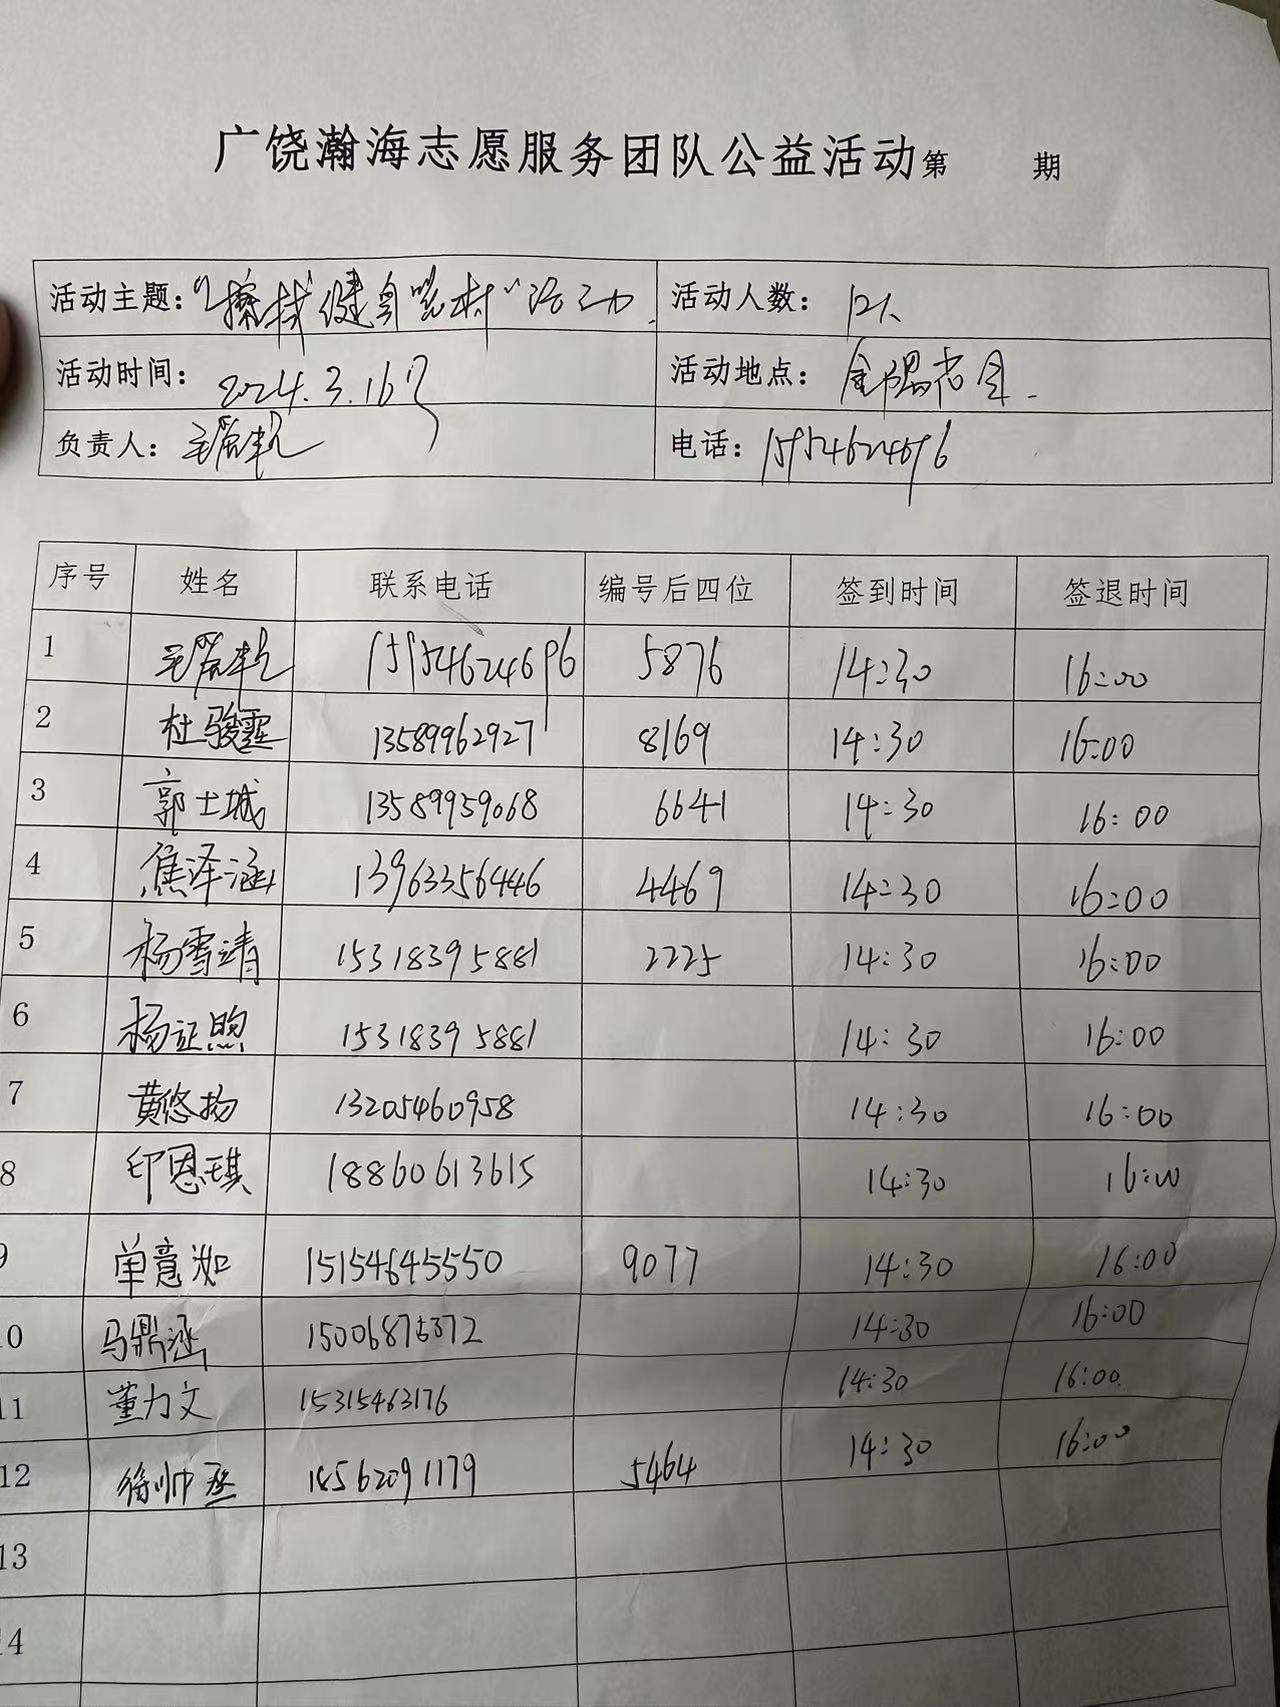 广饶瀚海志愿服务团队公益活动第 期
活动主题：“擦拭健身器材”活动. 活动人数：12人
活动时间：2024.3.16日 活动地点：
负责人： 电话：
序号 姓名 联系电话 编号后四位 签到时间 签退时间
1 15954624696 5876 14:30 16:00
2 杜骏霆 13589962927 8169 14:30 16:00
3 郭士城 13589959068 6641 14:30 16:00
4 焦泽涵 13963356446 4469 14:30 16:00
5 杨雪靖 15318395881 2225 14:30 16:00
6 杨证煦 15318395881 14:30 16:00
7 黄悠扬 13205460958 14:30 16:00
8 印恩琪 18860613615 14:30 16:00
9 单意洳 15154645550 9077 14:30 16:00
10 马鼎涵 15006875372 14:30 16:00
11 董力文 15315463176 14:30 16:00
12 徐帅丞 18562091179 5464 14:30 16:00
13
14